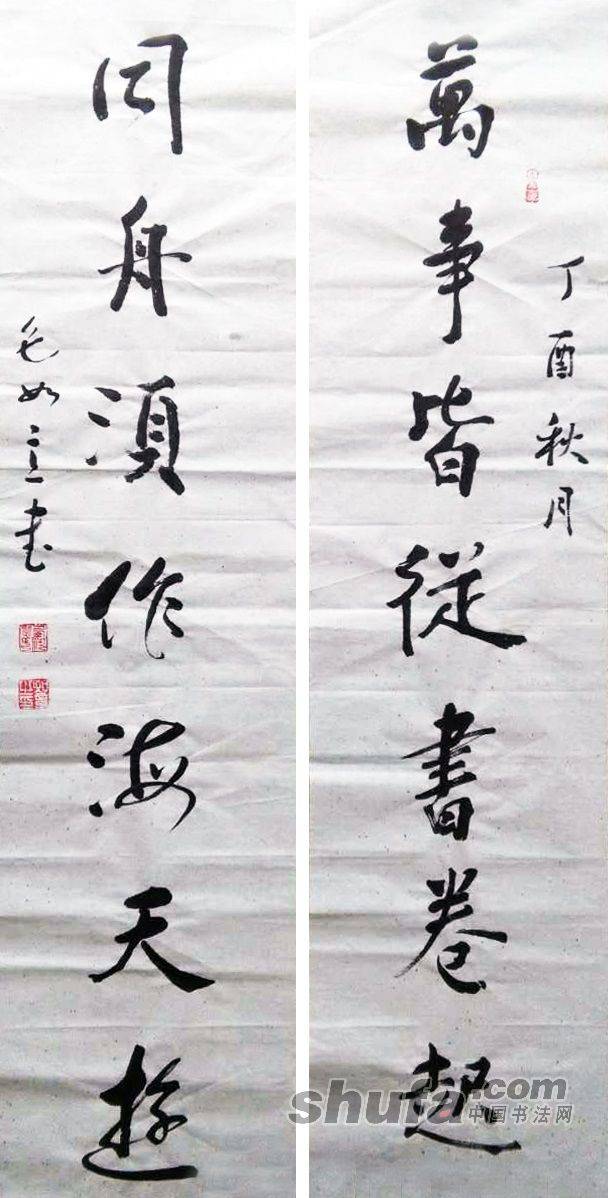 丁酉秋月
萬事皆從書卷起
同舟須作海天遊
毛如言书
shufa.com
中国书法网